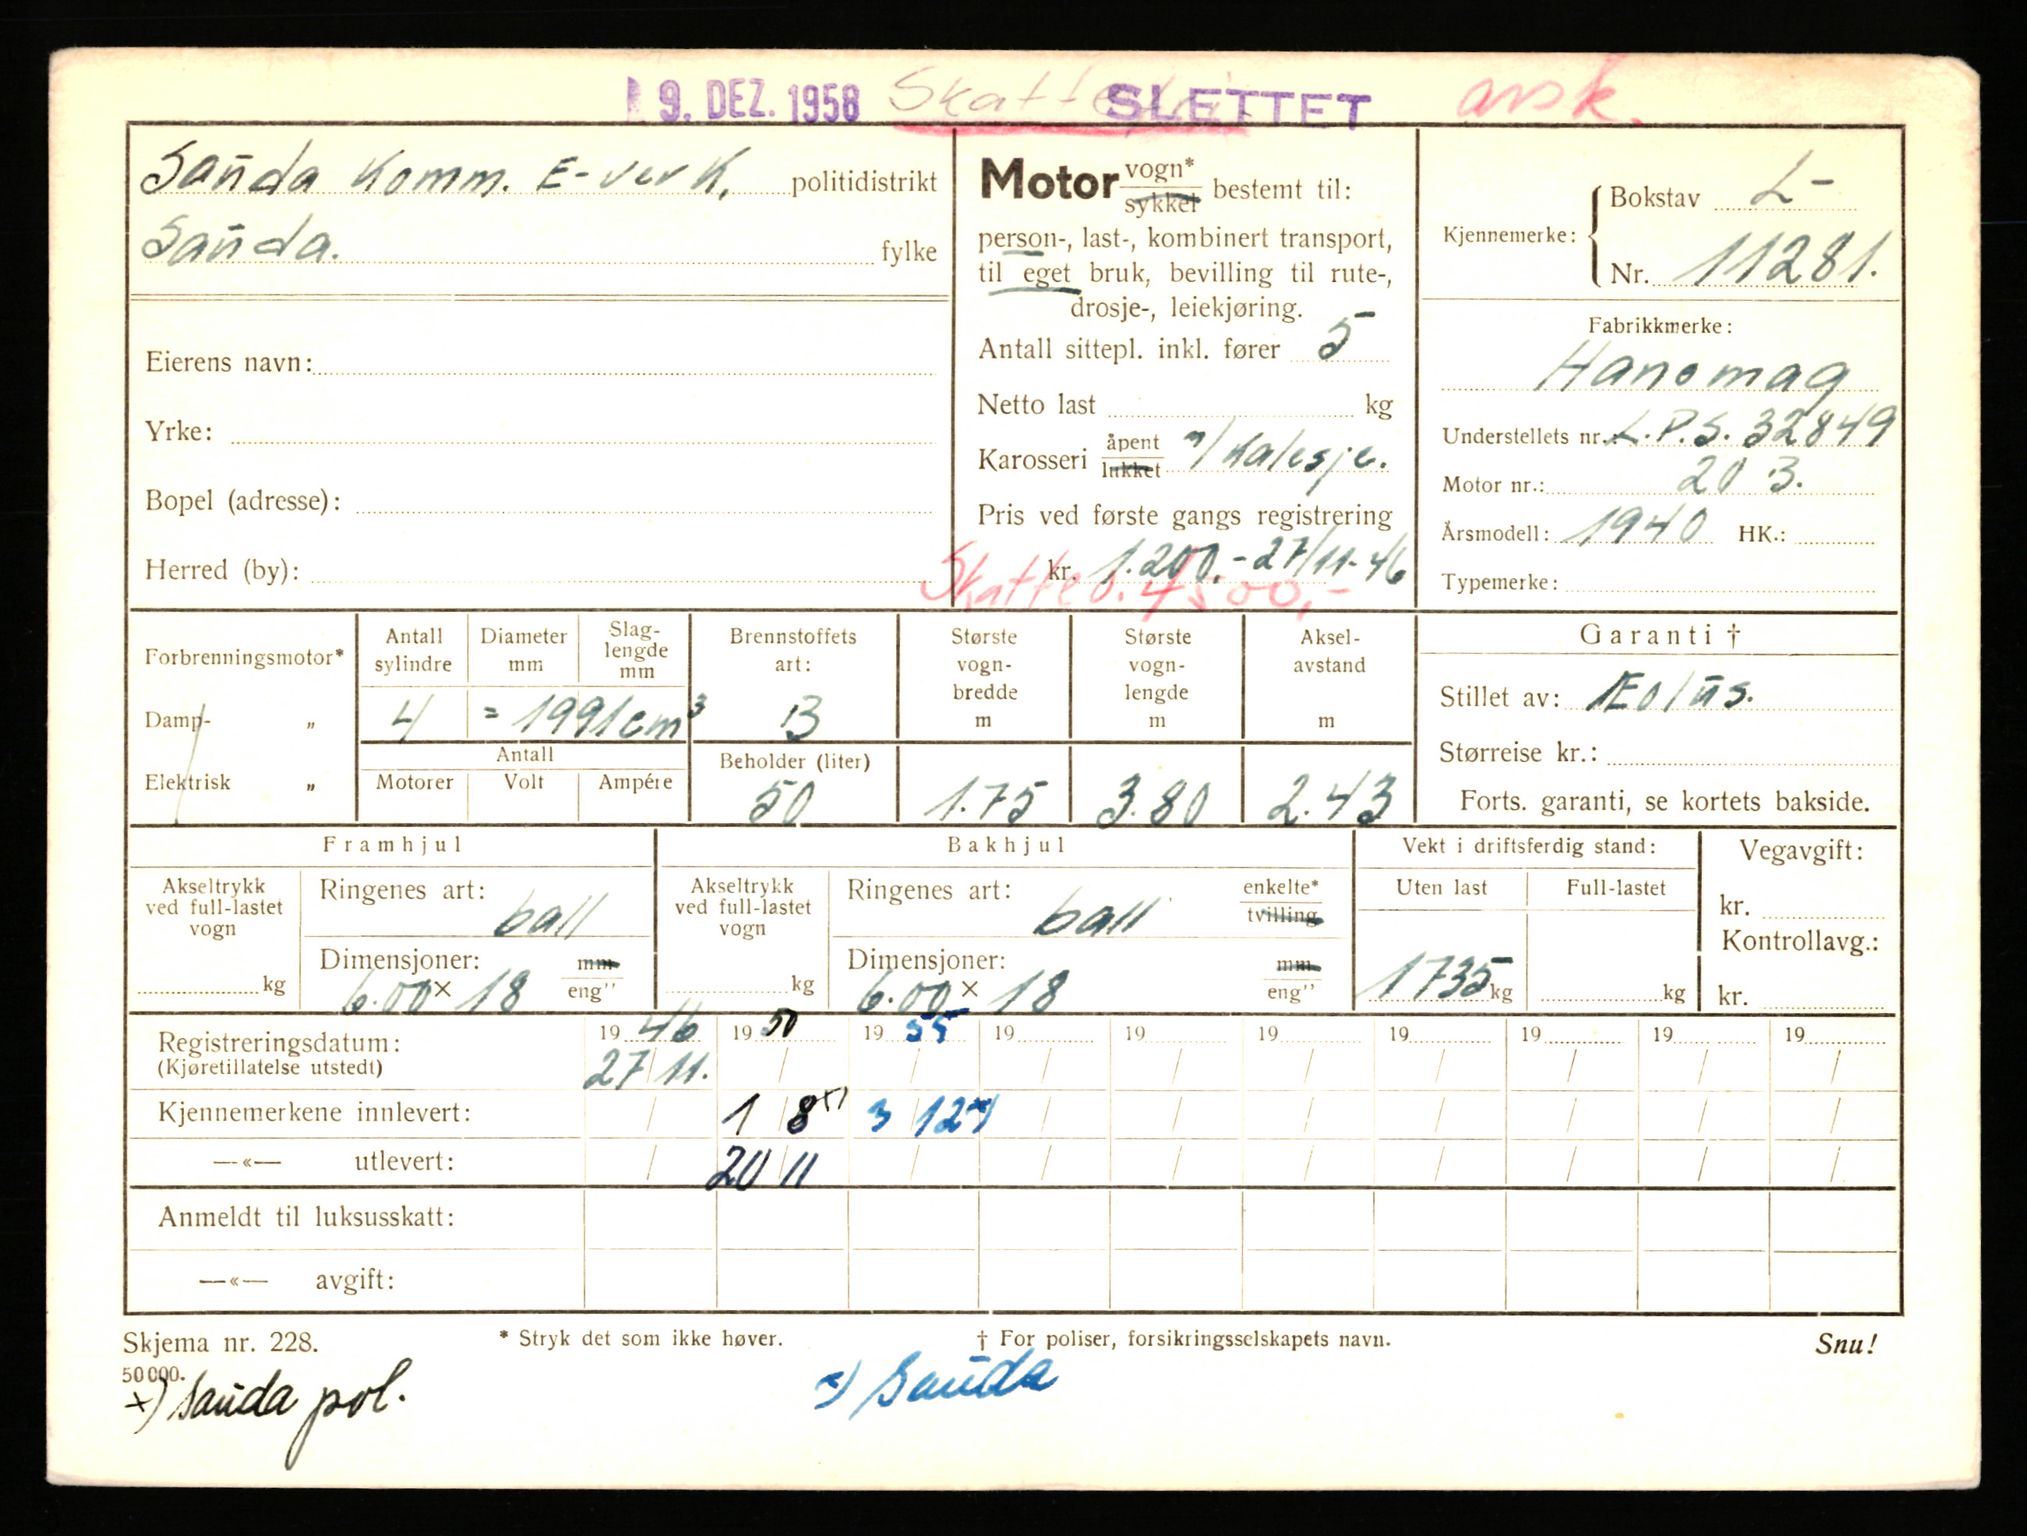 9. DEZ. 1958 Skattefri SLETTET avsk.
Sauda Komm. E-verk. politidistrikt
Sauda. fylke
Eierens navn:
Yrke:
Bopel (adresse):
Herred (by):
Motor vogn* sykkel bestemt til:
person-, last-, kombinert transport,
til eget bruk, bevilling til rute-,
drosje-, leiekjøring.
Antall sittepl. inkl. fører 5
Netto last kg
Karosseri åpent lukket m/kalesje.
Pris ved første gangs registrering
kr. 1.200.- 27/11-46
Skattev. 4500,-
Kjennemerke: Bokstav L-
Nr. 11281.
Fabrikkmerke:
Hanomag
Understellets nr.: L.P.S. 32849
Motor nr.: 20 3.
Årsmodell: 1940 HK.:
Typemerke:
Forbrenningsmotor*
Damp- „
Elektrisk „
Antall sylindre Diameter mm Slag-lengde mm
4 = 1991cm³
Antall
Motorer Volt Ampére
Brennstoffets art:
B
Beholder (liter)
50
Største vogn-bredde m
1.75
Største vogn-lengde m
3.80
Aksel-avstand m
2.43
Garanti †
Stillet av: Æolus.
Størreise kr.:
Forts. garanti, se kortets bakside.
Framhjul
Akseltrykk ved full-lastet vogn
kg
Ringenes art: ball
Dimensjoner: mm
6.00 × 18 eng"
Bakhjul
Akseltrykk ved full-lastet vogn
kg
Ringenes art: ball enkelte* tvilling
Dimensjoner: mm
6.00 × 18 eng"
Vekt i driftsferdig stand:
Uten last Full-lastet
1735 kg kg
Vegavgift:
kr.
Kontrollavg.:
kr.
Registreringsdatum: 19 46 19 50 19 55 19 19 19 19 19 19 19
(Kjøretillatelse utstedt) 27/11. / / / / / / / / /
Kjennemerkene innlevert: / 1/8 x) 3/12 x) / / / / / / /
—«— utlevert: / 20/11 / / / / / / / /
Anmeldt til luksusskatt:
—«— avgift:
Skjema nr. 228. * Stryk det som ikke høver. † For poliser, forsikringsselskapets navn. Snu!
50 000.
x) Sauda pol. x) Sauda